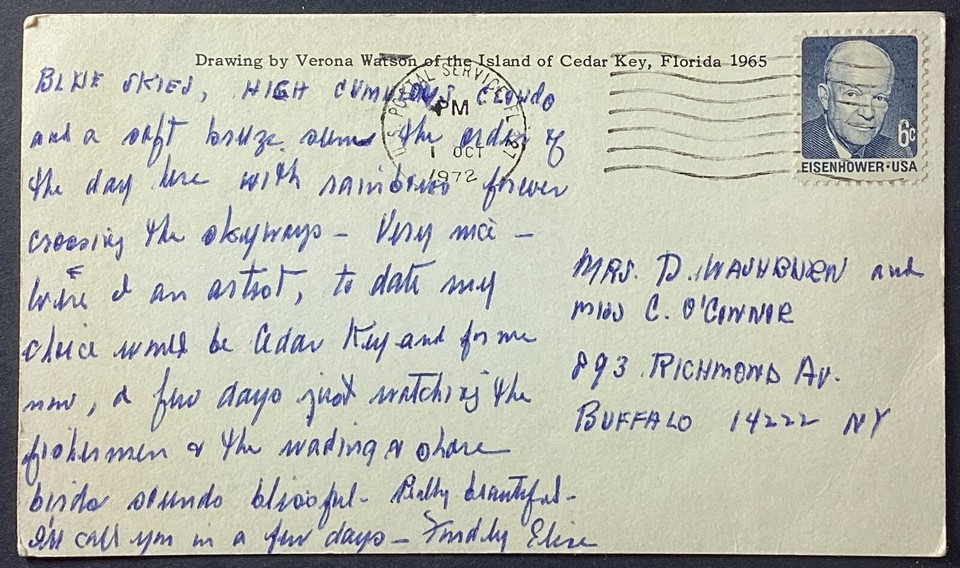 Drawing by Verona Watson of the Island of Cedar Key, Florida 1965
U.S. POSTAL SERVICE, FL 327
PM
1 OCT
1972
6c
EISENHOWER·USA
BLUE SKIES, HIGH CUMULOUS CLOUDS
and a soft breeze seems the order of
the day here with rainbows forever
crossing the skyways – Very nice –
Were I an artist, to date my
choice would be Cedar Key and for me
now, a few days just watching the
fishermen & the wading & shore
birds sounds blissful – Really beautiful –
I'll call you in a few days – Fondly Elise
MRS. D. WASHBURN and
MISS C. O'CONNOR
893 RICHMOND AV.
BUFFALO 14222 NY